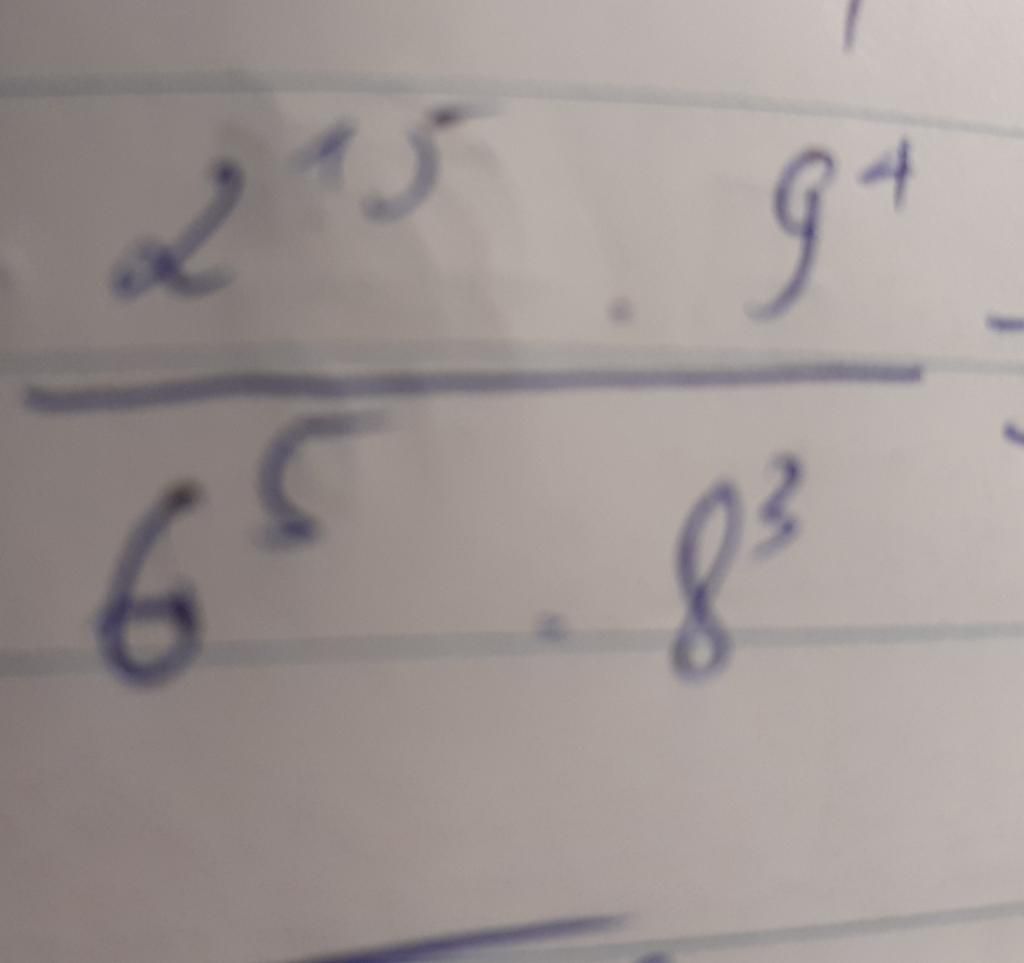 2¹⁵ . 9⁴
6⁵ . 8³